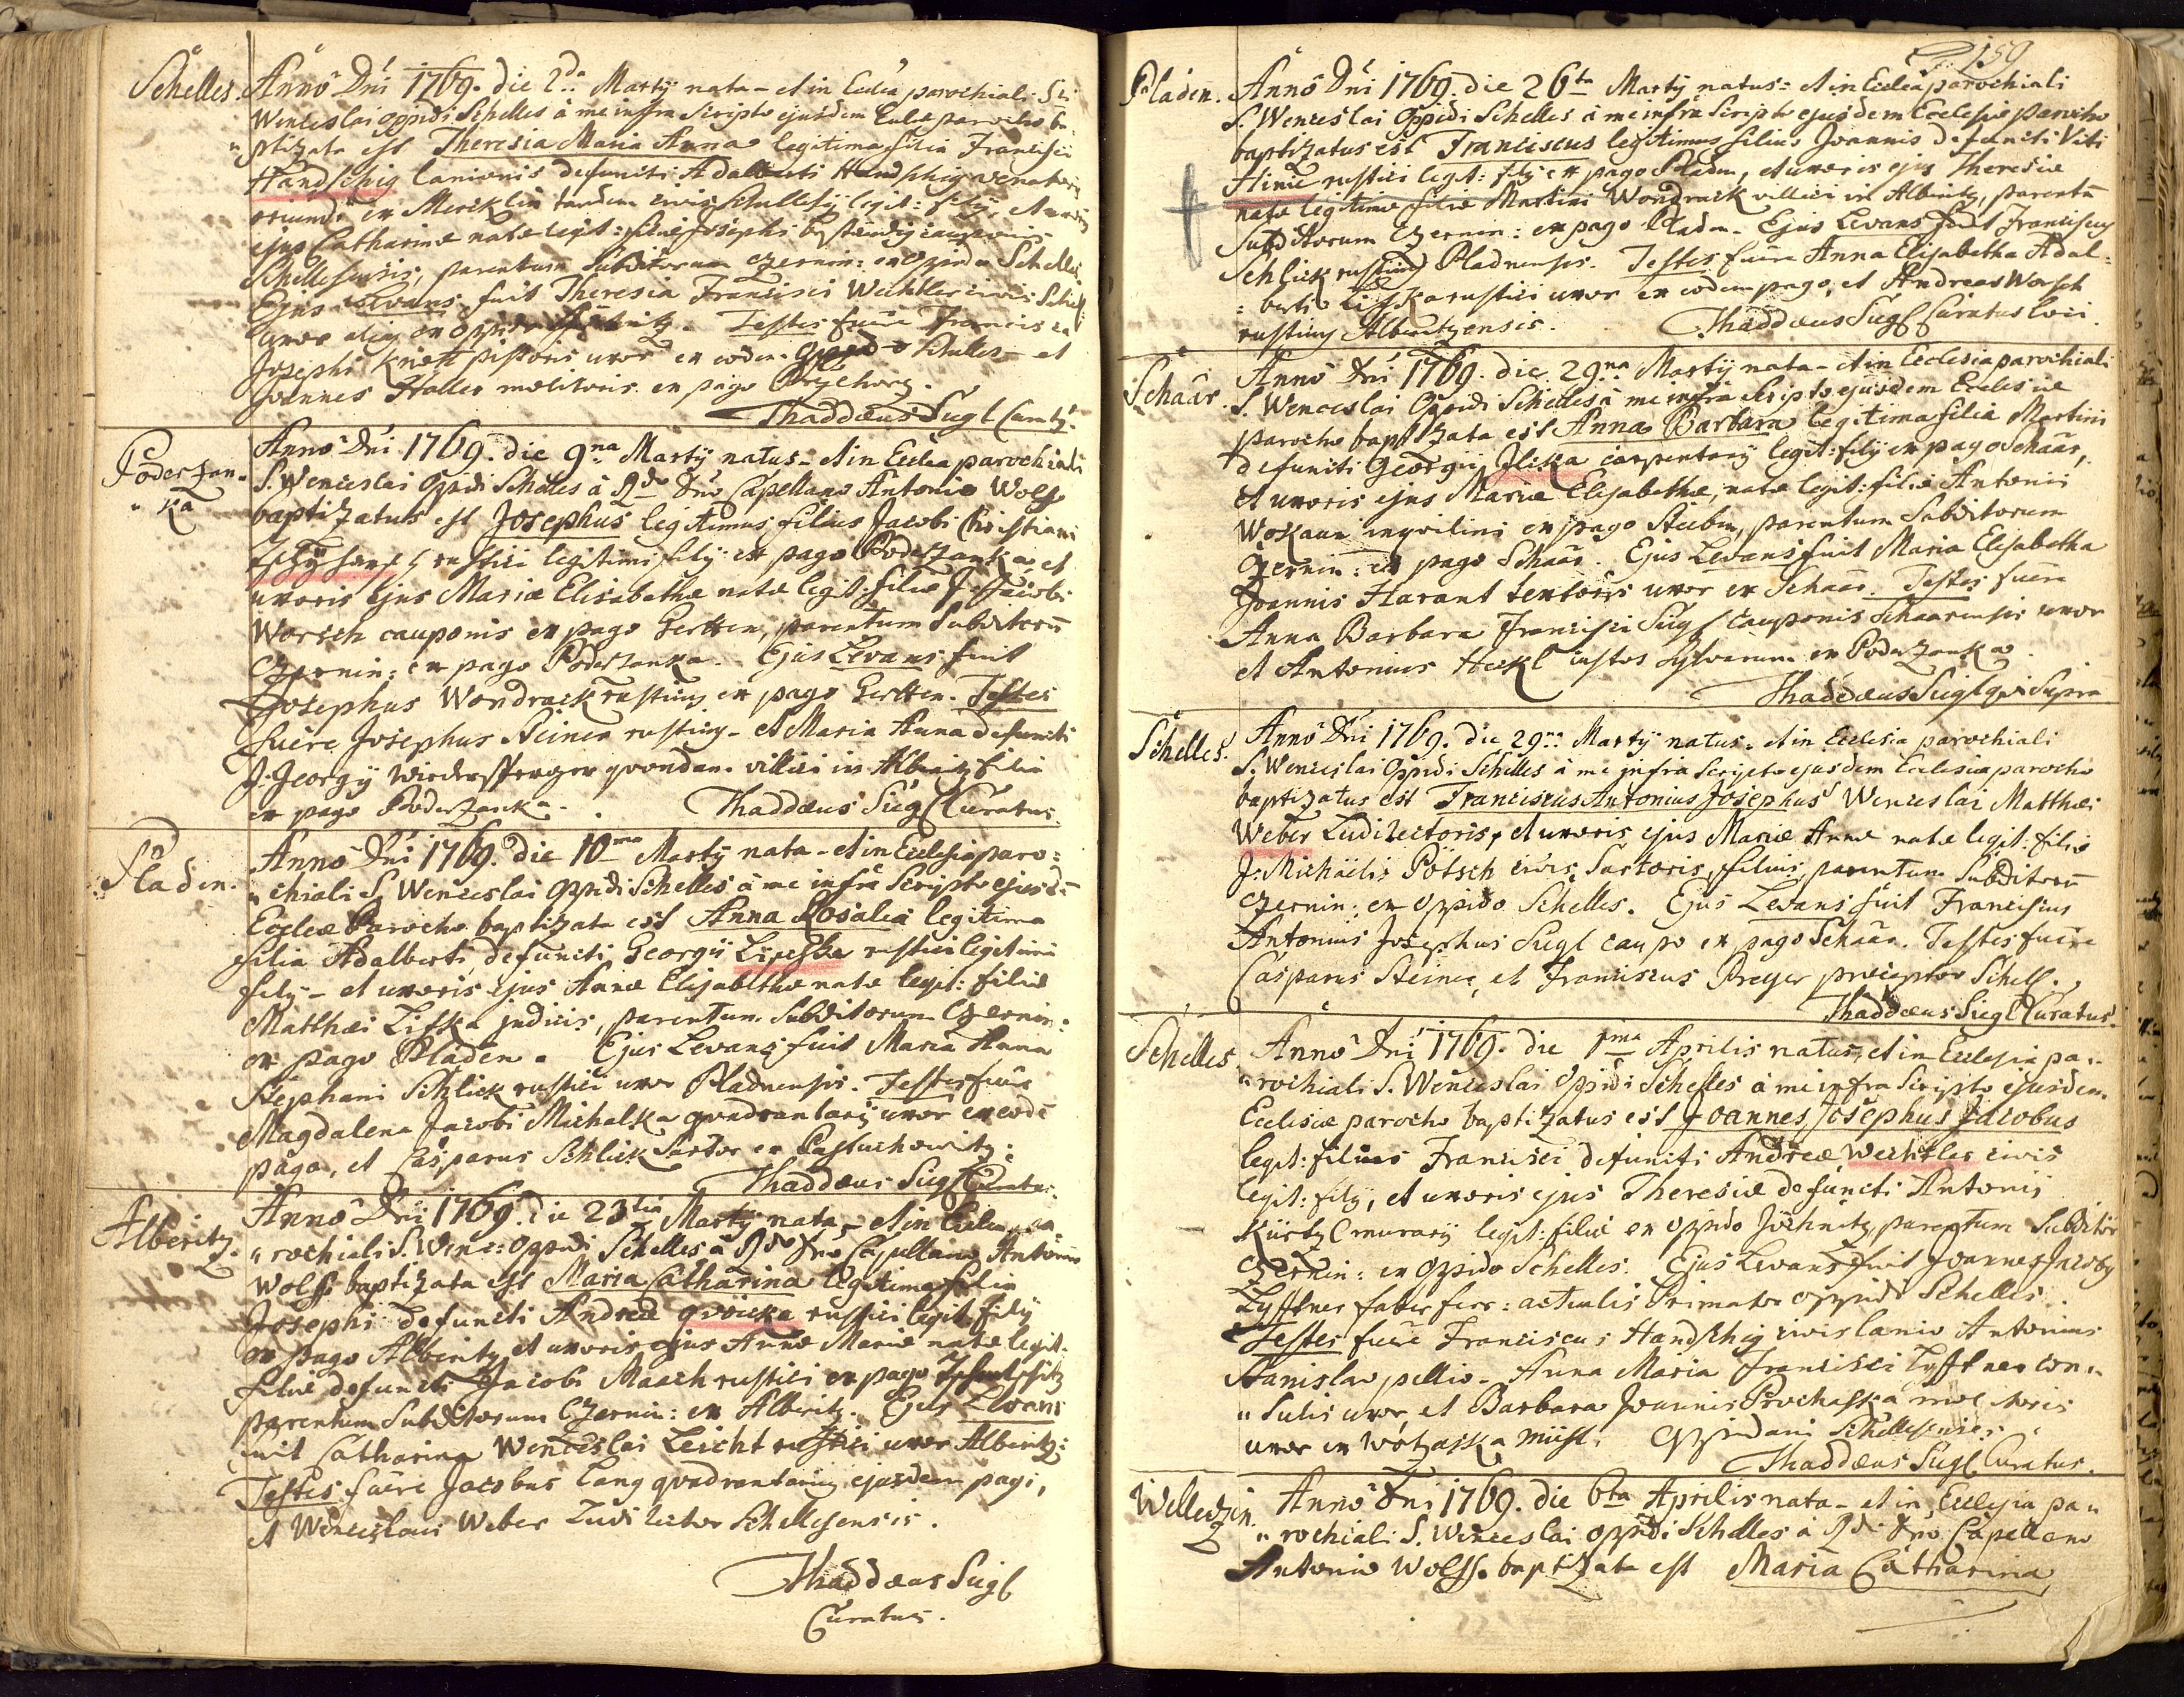 Schelles. Anno Dni 1769. die 2da Martÿ nata - et in Ecclia parochiali Sti
Wenceslai oppidi Schelles à me infra Scripto ejusdem Eccliæ parocho ba-
"ptizata est Theresia Maria Anna legitima filia Francisci
Handschig lanionis defuncti Adalberti Handschig venatoris
oriundi ex Mereklin tandem civis Schellesÿ legit: filÿ, et uxoris
ejus Catharinæ natæ legit: filiæ Josephi
Schellesensis, parentum Subditorum Czernin: ex oppido Schelles
Ejus Levans fuit Theresia Francisci Weichtler civis Schell:
uxor ex oppido Testes fuêre Francisca
Josephi Knett pistoris uxor ex eodem oppido Schelles - et
Joannes Haller molitoris ex pago
Thaddæus Sügl Curatq.
Poderzan-
"ka
Anno Dni 1769. die 9na Martÿ natus - et in Ecclia parochiali
S. Wenceslai Oppidi Schelles à Rdo Dno Capellano Antonio Wolff
baptizatus est Josephus legitimus filius Jacobi Christiani
rustici legitimi filÿ ex pago Poderzanka, et
uxoris ejus Mariæ Elisabethæ natæ legit: filiæ J. Jacobi
Worsch cauponis ex pago Gertten, parentum Subditorũ
Czernin: ex pago Poderzanka. Ejus Levans fuit
Josephus Wondrack rusticq ex pago Gertten. Testes
fuêre Josephus Steiner rusticq - et Maria Anna defuncti
J. Georgÿ Wiedersperger qvondam villici in Alberitz filia
ex pago Poderzanka. Thaddæus Sügl Curatus.
Pladen. Anno Dni 1769. die 10ma Martÿ nata - et in Ecclesia paro=
"chiali S. Wenceslai oppidi Schelles à me infra Scripto ejusdẽ
Eccleæ Parocho baptizata est Anna Rosalia legitima
filia Adalberti, defuncti Georgii Lischka rustici legitimi
filÿ - et uxoris ejus Annæ Elisabethæ natæ legit: filiæ
Matthæi Lifka judicis, parentum Subditorum Czernin:
ex pago Pladen. Ejus Levans fuit Maria Anna
Stephani Schlick rustici uxor Pladnensis. Testes fuêre
Magdalena Jacobi Michalka qvadrantarÿ uxor ex eodẽ
pago, et Casparus Schlick Sartor ex Pastuchowitz.
Thaddæus Sügl Curatus.
Alberitz. Anno Dni 1769. die 23tia Martÿ nata - et in Ecclia pa
"rochiali S. Wenc: Oppidi Schelles à Rdo Dno Capellano Antonio
Wolff baptizata est Maria Catharina legitima filia
Josephi defuncti Andreæ qvoicka rustici legit: filÿ
ex pago Alberitz, et uxoris ejus Annæ Mariæ natæ legit.
filiæ defuncti Jacobi Maach rustici ex pago
parentum Subditorum Czernin: ex Alberitz. Ejus Levans
fuit Catharina Wenceslai Leicht rustici uxor Alberitz:
Testes fuêre Jacobus Lang qvadrantariq ejusdem pagi,
et Wenceslaus Weber Ludirector Schellesensis.
Thaddæus Sügl
Curatus.
159
Pladen. Anno Dni 1769. die 26ta Martÿ natus - et in Ecclia parochiali
S. Wenceslai Oppidi Schelles à me infra Scripto ejusdem Ecclesiæ parocho
baptizatus est Franciscus legitimus filius Joannis defuncti Viti
rustici legit: filÿ ex pago Pladen, et uxoris ejus Theresiæ
natæ legitimæ filiæ Martini Wondrack villici in Alberitz, parentũ
Subditorum Czernin: ex pago Pladen. Ejus Levans fuit Franciscus
Schlick rusticq Pladnensis. Testes fuêre Anna Elisabetha Adal=
=berti Lischka rustici uxor ex eodem pago, et Andreas Worsch
rusticus Alberitzensis. Thaddæus Sügl Curatus loci.
Schaar. Anno Dni 1769. die 29na Martÿ nata - et in Ecclesia parochiali
S. Wenceslai Oppidi Schelles à me infra Scripto ejusdem Ecclesiæ
parocho baptizata est Anna Barbara legitima filia Martini
defuncti Georgii Iliska carpentarÿ legit: filÿ ex pago Schaar,
et uxoris ejus Mariæ Elisabethæ, natæ legit: filiæ Antonii
Wokaun inqvilini ex pago Steiben, parentum Subditorum
Czernin: ex pago Schaar. Ejus Levans fuit Maria Elisabetha
Joannis Harant textoris uxor ex Schaar. Testes fuêre
Anna Barbara Francisci Sügl Cauponis Schaarensis uxor
et Antonius Heckl custos Sylvarum ex Poderzanka.
Thaddæus Sügl qvi Supra
Schelles. Anno Dni 1769. die 29na Martÿ natus - et in Ecclesia parochiali
S. Wenceslai Oppidi Schelles à me infra Scripto ejusdem Ecclesiæ parocho
baptizatus est Franciscus Antonius Josephus Wenceslai Matthæi
Weber Ludirectoris, et uxoris ejus Mariæ Annæ natæ legit: filiæ
J: Michäelis Pötsch civis Sartoris, filius, parentum Subditorũ
Czernin: ex oppido Schelles. Ejus Levans fuit Franciscus
Antonius Josephus Sügl caupo ex pago Schaar. Testes fuêre
Casparus Steiner, et Franciscus Preger præceptor Schell.
Thaddæus Sügl Curatus.
Schelles Anno Dni 1769. die 1ma Aprilis natus, et in Ecclesia pa-
"rochiali S. Wenceslai Oppidi Schelles à me infra Scripto ejusdem
Ecclesiæ parocho baptizatus est Joannes Josephus Jacobus
legit: filius Francisci defuncti Andreæ Weichtler civis
legit: filÿ, et uxoris ejus Theresiæ defuncti Antonii
Kürtzl murarÿ legit: filiæ ex oppido Jöchnitz, parentum Subditor
Czernin: ex oppido Schelles. Ejus Levans fuit Joannes Jacobq
Lyfftner faber ferr: actualis Primator oppidi Schelles
Testes fuêre Franciscus Handschig civis lanio Antonius
Stanislav pellio - Anna Maria Francisci Lyfftner con-
"sulis uxor, et Barbara Joannis Prochaska molitoris
uxor ex Oppidani Schellesensis.
Thaddæus Sügl Curatus.
Welleczin. Anno Dni 1769. die 6ta Aprilis nata - et in Ecclesia pa"
"rochiali S. Wenceslai oppidi Schelles à Rdo Dno Capellano
Antonio Wolff baptizata est Maria Catharina,